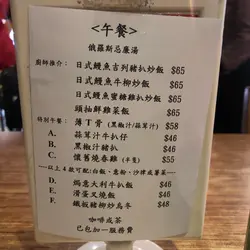 <午餐>
俄羅斯忌廉湯
廚師推介：日式鰻魚吉列豬扒炒飯 $65
日式鰻魚牛柳炒飯 $65
日式鰻魚蜜糖雞扒炒飯 $65
頭抽鮮雞炒飯 $65
特別午餐：薄丁骨（黑椒汁/蒜茸汁） $58
A. 蒜茸汁牛扒仔 $46
B. 黑椒汁豬扒 $46
C. 懷舊燒春雞（半隻） $55
---以上4款可配(白飯、意粉、沙律或薯菜---
D. 焗意大利牛扒飯 $46
E. 滑蛋叉燒飯 $46
F. 鐵板豬柳炒烏冬 $48
咖啡或茶
已包加一服務費